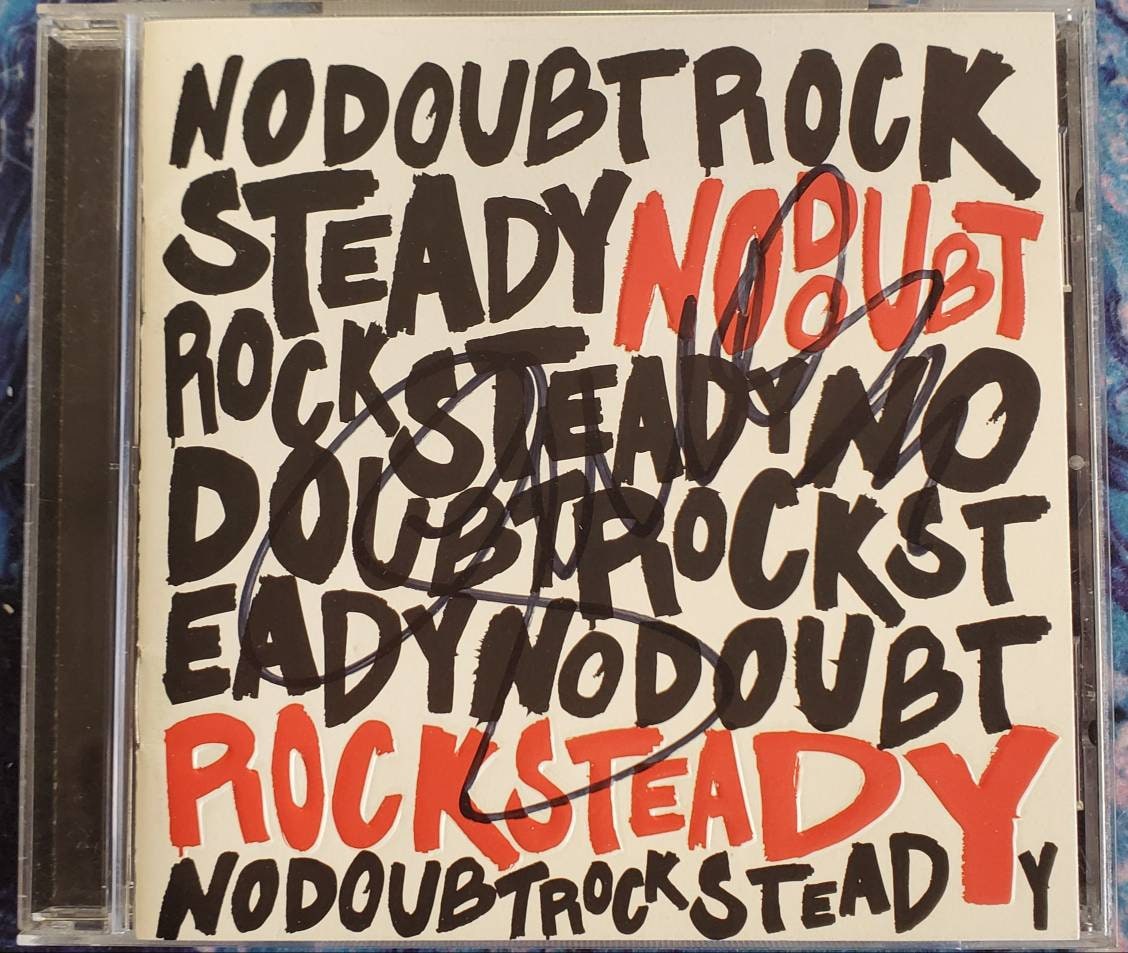 NODOUBTROCK
STEADY NODOUBT
ROCKSTEADYNO
DOUBTROCKST
EADYNODOUBT
ROCKSTEADY
NODOUBTROCKSTEADY